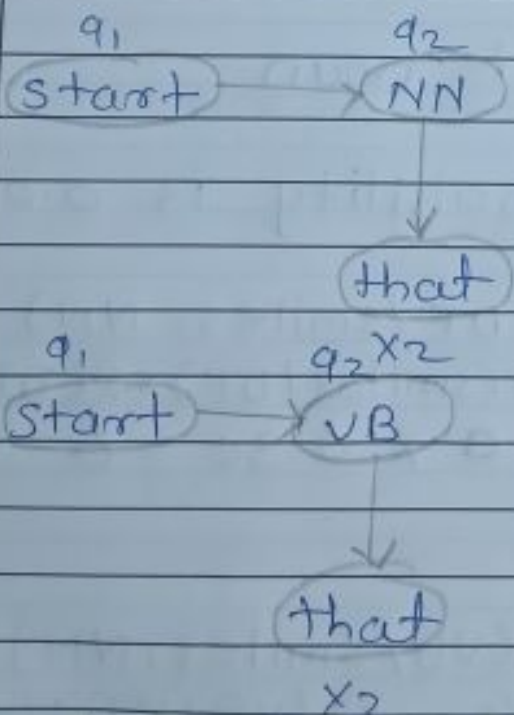 q1 q2
start NN
that
q1 q2 X2
start VB
that
X2